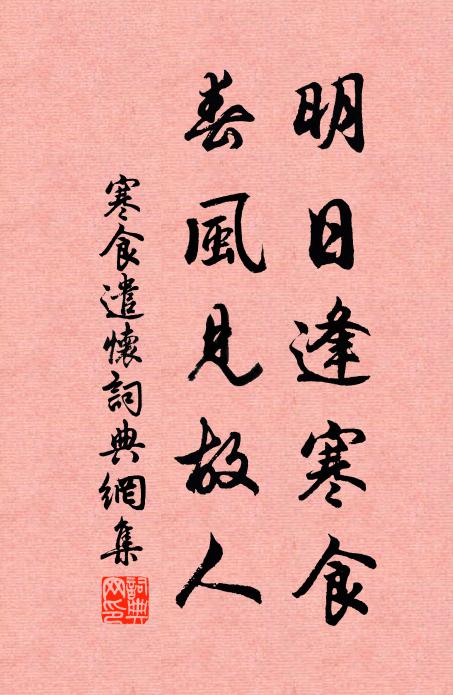 明日逢寒食
春風見故人
寒食遣懷詞典網集
詞典網印